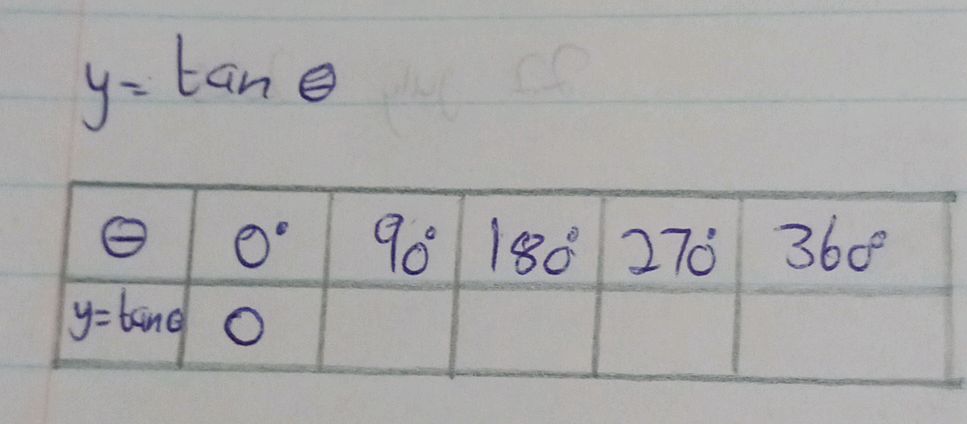 y = tan θ
θ 0° 90° 180° 270° 360°
y = tan θ 0